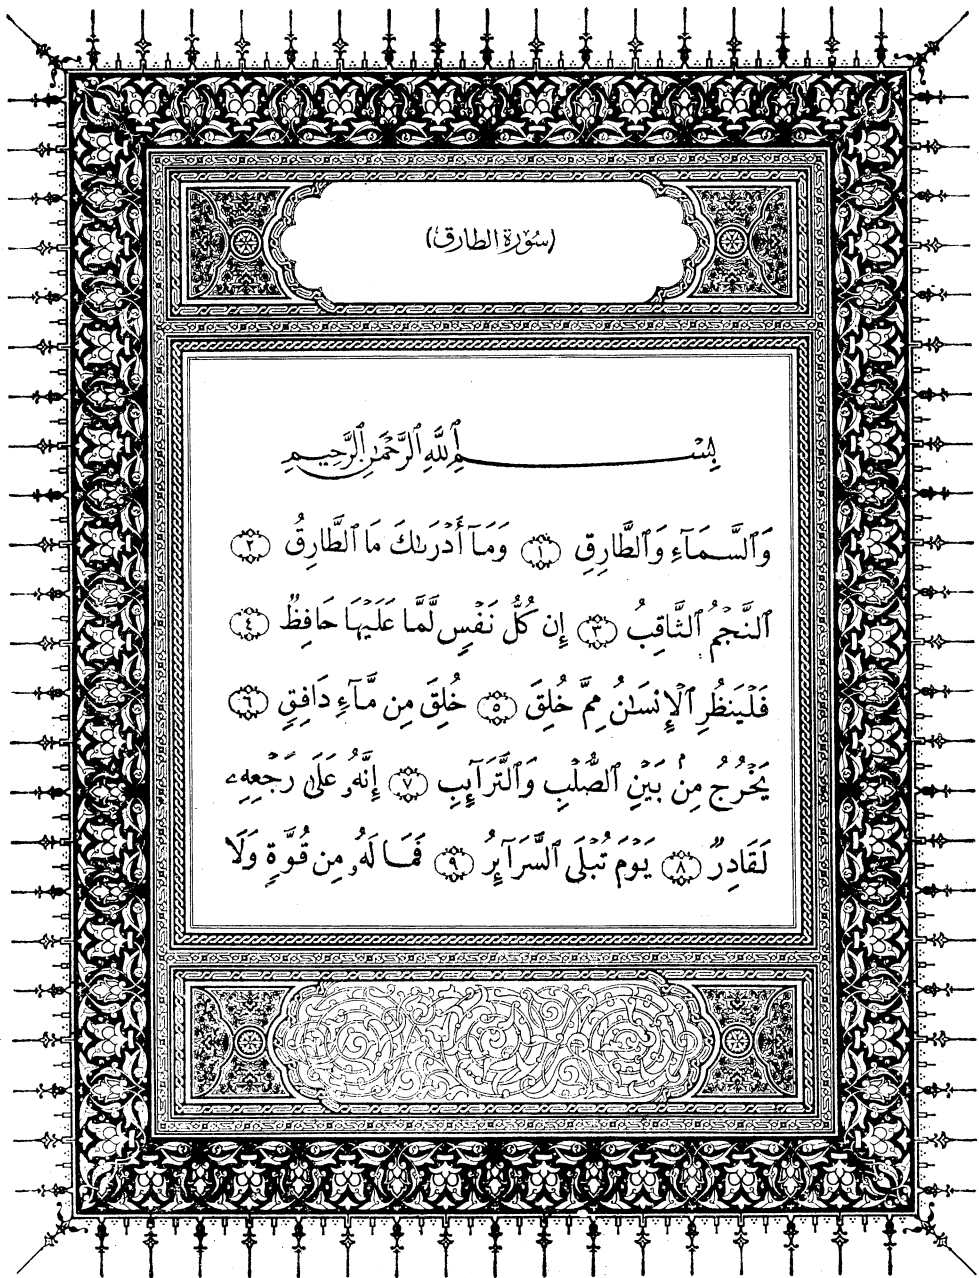 (سُورَة الطارق)
بِسْمِ ٱللَّهِ ٱلرَّحْمَٰنِ ٱلرَّحِيمِ
وَٱلسَّمَآءِ وَٱلطَّارِقِ ١ وَمَآ أَدْرَىٰكَ مَا ٱلطَّارِقُ ٢
ٱلنَّجْمُ ٱلثَّاقِبُ ٣ إِن كُلُّ نَفْسٍ لَّمَّا عَلَيْهَا حَافِظٌ ٤
فَلْيَنظُرِ ٱلْإِنسَٰنُ مِمَّ خُلِقَ ٥ خُلِقَ مِن مَّآءٍ دَافِقٍ ٦
يَخْرُجُ مِنۢ بَيْنِ ٱلصُّلْبِ وَٱلتَّرَآئِبِ ٧ إِنَّهُۥ عَلَىٰ رَجْعِهِۦ
لَقَادِرٌ ٨ يَوْمَ تُبْلَى ٱلسَّرَآئِرُ ٩ فَمَا لَهُۥ مِن قُوَّةٍ وَلَا